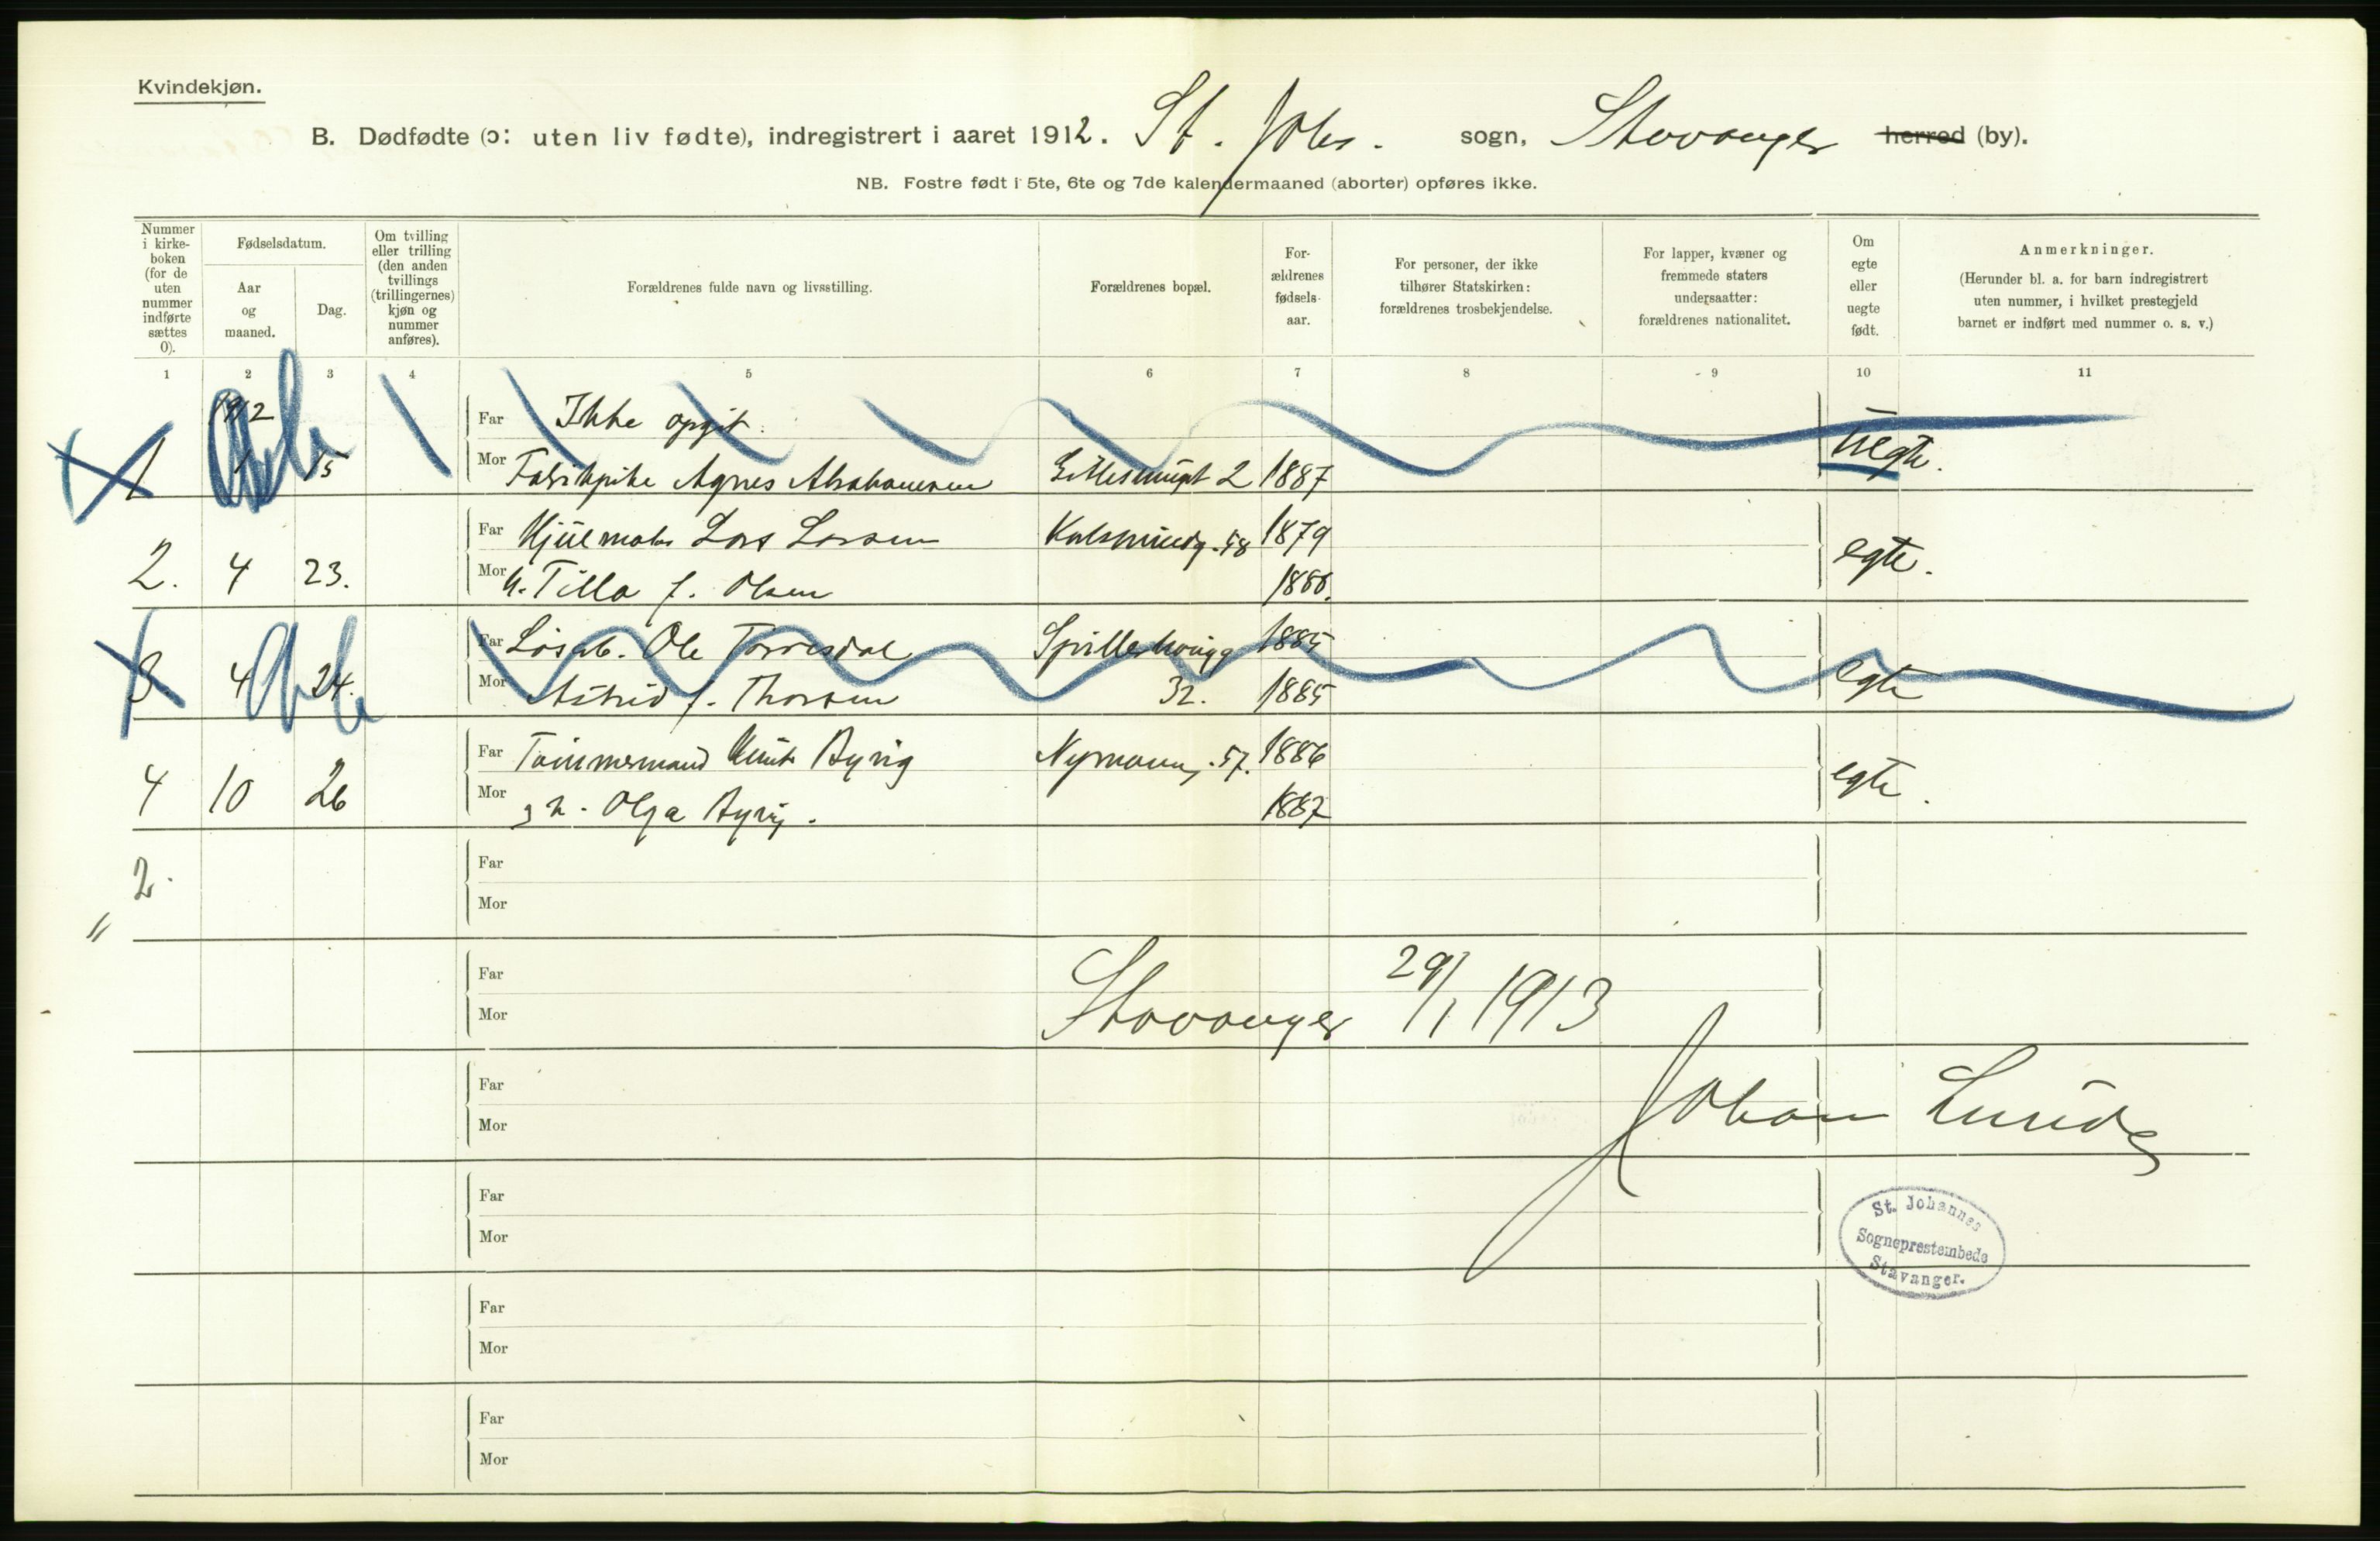 Kvindekjøn.
B. Dødfødte (ɔ: uten liv fødte), indregistrert i aaret 1912. St. Johs. sogn, Stavanger herred (by).
NB. Fostre født i 5te, 6te og 7de kalendermaaned (aborter) opføres ikke.
Nummer
i kirke-
boken
(for de
uten
nummer
indførte
sættes
0).
Fødselsdatum.
Aar
og
maaned.
Dag.
Om tvilling
eller trilling
(den anden
tvillings
(trillingernes)
kjøn og
nummer
anføres).
Forældrenes fulde navn og livsstilling.
Forældrenes bopæl.
For-
ældrenes
fødsels-
aar.
For personer, der ikke
tilhører Statskirken:
forældrenes trosbekjendelse.
For lapper, kvæner og
fremmede staters
undersaatter:
forældrenes nationalitet.
Om
egte
eller
uegte
født.
Anmerkninger.
(Herunder bl. a. for barn indregistrert
uten nummer, i hvilket prestegjeld
barnet er indført med nummer o. s. v.)
1 2 3 4 5 6 7 8 9 10 11
1912 Far Ikke opgit.
1 1 15 Mor Fabrikpike Agnes Abrahamsen 2 1887 uegte.
Far Lars Larsen 58 1879
2. 4 23. Mor h. Tilla f. Olsen 1880. egte.
Far Løsarb. Ole Torresdal 1885
3 4 24. Mor Astrid f. Thorsen 32. 1885 egte
Far Tømmermand Knut Byrig 57. 1886
4 10 26 Mor h. Olga 1887 egte.
2.
Far
Mor
"
Far
Mor
Stavanger 29/1 1913
Far
Mor
Johan Lunde
Far
Mor
St. Johannes
Sogneprestembede
Stavanger.
Far
Mor
Far
Mor